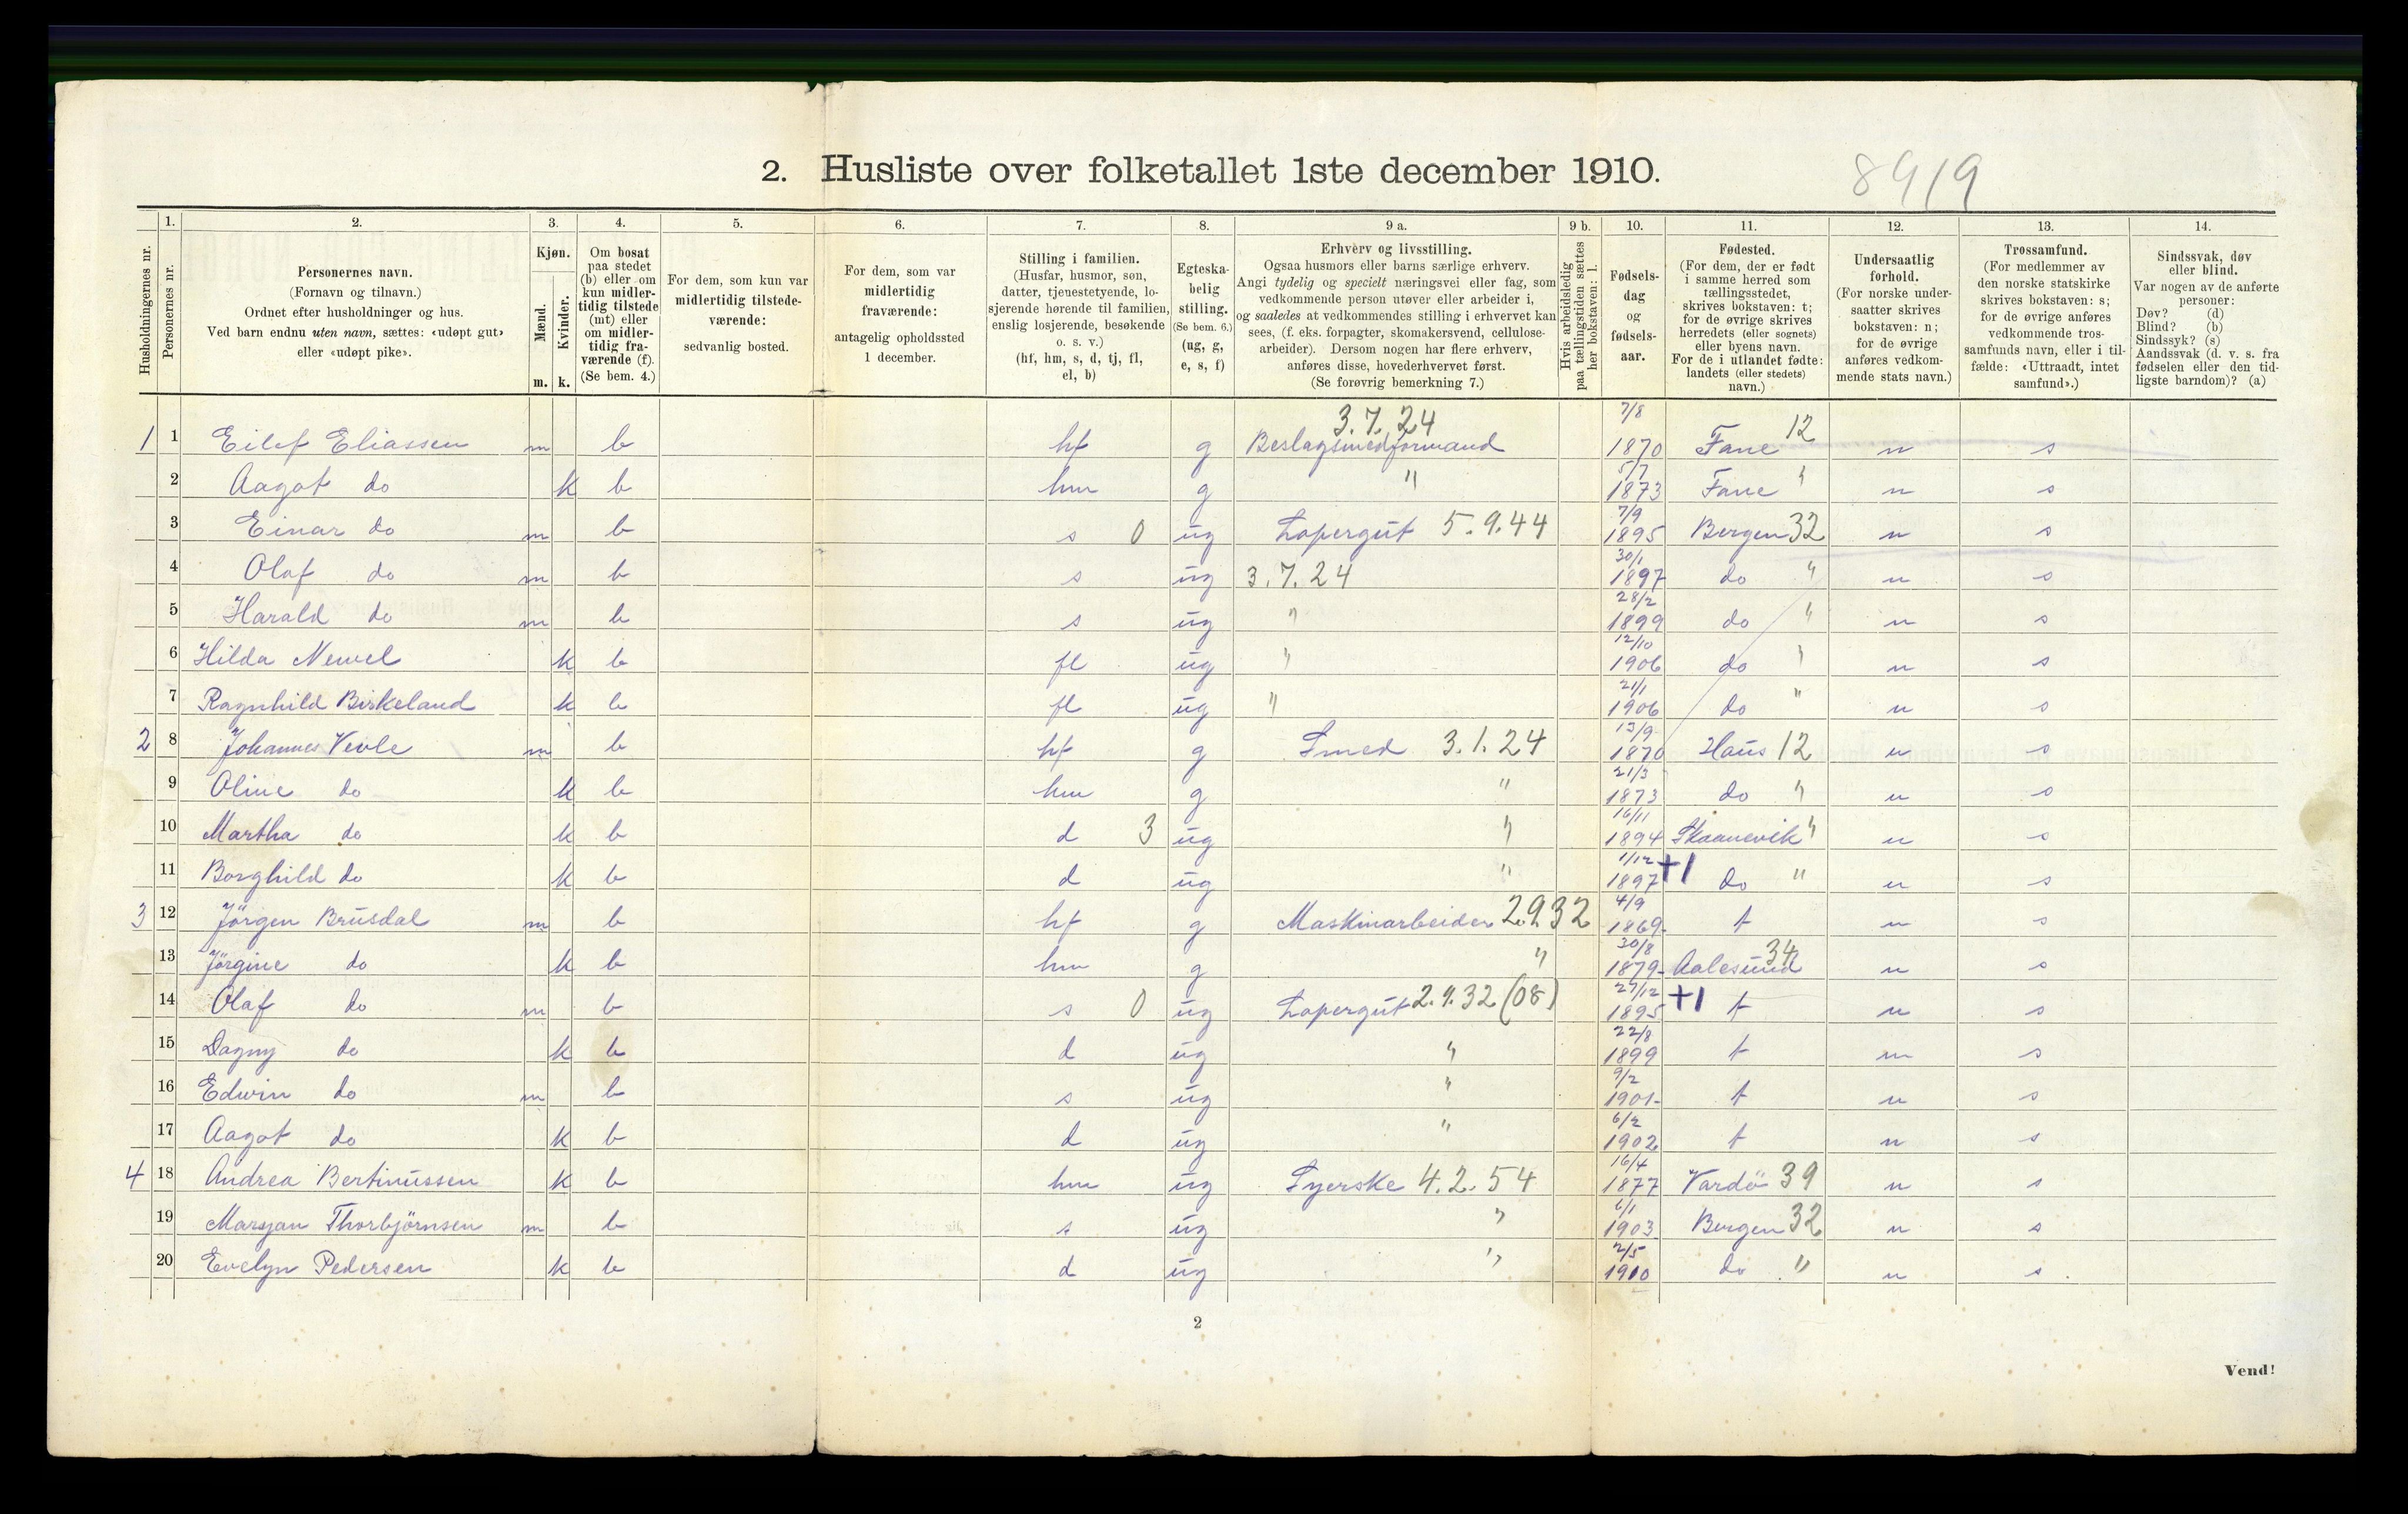 2. Husliste over folketallet 1ste december 1910.
8919
Husholdningernes nr.
1. Personernes nr.
2. Personernes navn. (Fornavn og tilnavn.) Ordnet efter husholdninger og hus. Ved barn endnu uten navn, sættes: «udøpt gut» eller «udøpt pike».
3. Kjøn. Mænd. m. Kvinder. k.
4. Om bosat paa stedet (b) eller om kun midlertidig tilstede (mt) eller om midlertidig fraværende (f). (Se bem. 4.)
5. For dem, som kun var midlertidig tilstedeværende: sedvanlig bosted.
6. For dem, som var midlertidig fraværende: antagelig opholdssted 1 december.
7. Stilling i familien. (Husfar, husmor, søn, datter, tjenestetyende, losjerende hørende til familien, enslig losjerende, besøkende o. s. v.) (hf, hm, s, d, tj, fl, el, b)
8. Egteskabelig stilling. (Se bem. 6.) (ug, g, e, s, f)
9 a. Erhverv og livsstilling. Ogsaa husmors eller barns særlige erhverv. Angi tydelig og specielt næringsvei eller fag, som vedkommende person utøver eller arbeider i, og saaledes at vedkommendes stilling i erhvervet kan sees, (f. eks. forpagter, skomakersvend, cellulosearbeider). Dersom nogen har flere erhverv, anføres disse, hovederhvervet først. (Se forøvrig bemerkning 7.)
9 b. Hvis arbeidsledig paa tællingstiden sættes her bokstaven: l.
10. Fødselsdag og fødselsaar.
11. Fødested. (For dem, der er født i samme herred som tællingsstedet, skrives bokstaven: t; for de øvrige skrives herredets (eller sognets) eller byens navn. For de i utlandet fødte: landets (eller stedets) navn.)
12. Undersaatlig forhold. (For norske undersaatter skrives bokstaven: n; for de øvrige anføres vedkommende stats navn.)
13. Trossamfund. (For medlemmer av den norske statskirke skrives bokstaven: s; for de øvrige anføres vedkommende trossamfunds navn, eller i tilfælde: «Uttraadt, intet samfund».)
14. Sindssvak, døv eller blind. Var nogen av de anførte personer: Døv? (d) Blind? (b) Sindssyk? (s) Aandssvak (d. v. s. fra fødselen eller den tidligste barndom)? (a)
1 1 Eilef Eliassen m b hf g Beslagsmedformand 3.7.24 7/8 1870 Fane 12 n s
2 Aagot do k b hm g " 5/7 1873 Fane " n s
3 Einar do m b s 0 ug Lopergut 5.9.44 7/9 1895 Bergen 32 n s
4 Olaf do m b s ug 3.7.24 30/1 1897 do " n s
5 Harald do m b s ug " 28/2 1899 do " n s
6 Hilda Newel k b fl ug " 12/10 1906 do " n s
7 Ragnhild Birkeland k b fl ug " 21/1 1906 do " n s
2 8 Johannes Vevle m b hf g Smed 3.1.24 13/9 1870 Haus 12 n s
9 Oline do k b hm g " 21/3 1873 do " n s
10 Martha do k b d 3 ug " 16/11 1894 Skaanevik " n s
11 Borghild do k b d ug " 1/12 1897 +1 do " n s
3 12 Jörgen Brusdal m b hf g Maskinarbeider 2.9.32 4/9 1869 t n s
13 Jörgine do k b hm g " 30/8 1879 Aalesund 34 n s
14 Olaf do m b s 0 ug Lopergut 2.9.32 (08) 27/12 1895 +1 t n s
15 Dagny do k b d ug " 22/8 1899 t n s
16 Edwin do m b s ug " 9/2 1901 t n s
17 Aagot do k b d ug " 6/2 1902 t n s
4 18 Andrea Bertinussen k b hm ug Syerske 4.2.54 16/4 1877 Vardö 39 n s
19 Marsjan Thorbjörnsen m b s ug " 6/1 1903 Bergen 32 n s
20 Evelyn Pedersen k b d ug " 2/5 1910 do " n s
2
Vend!